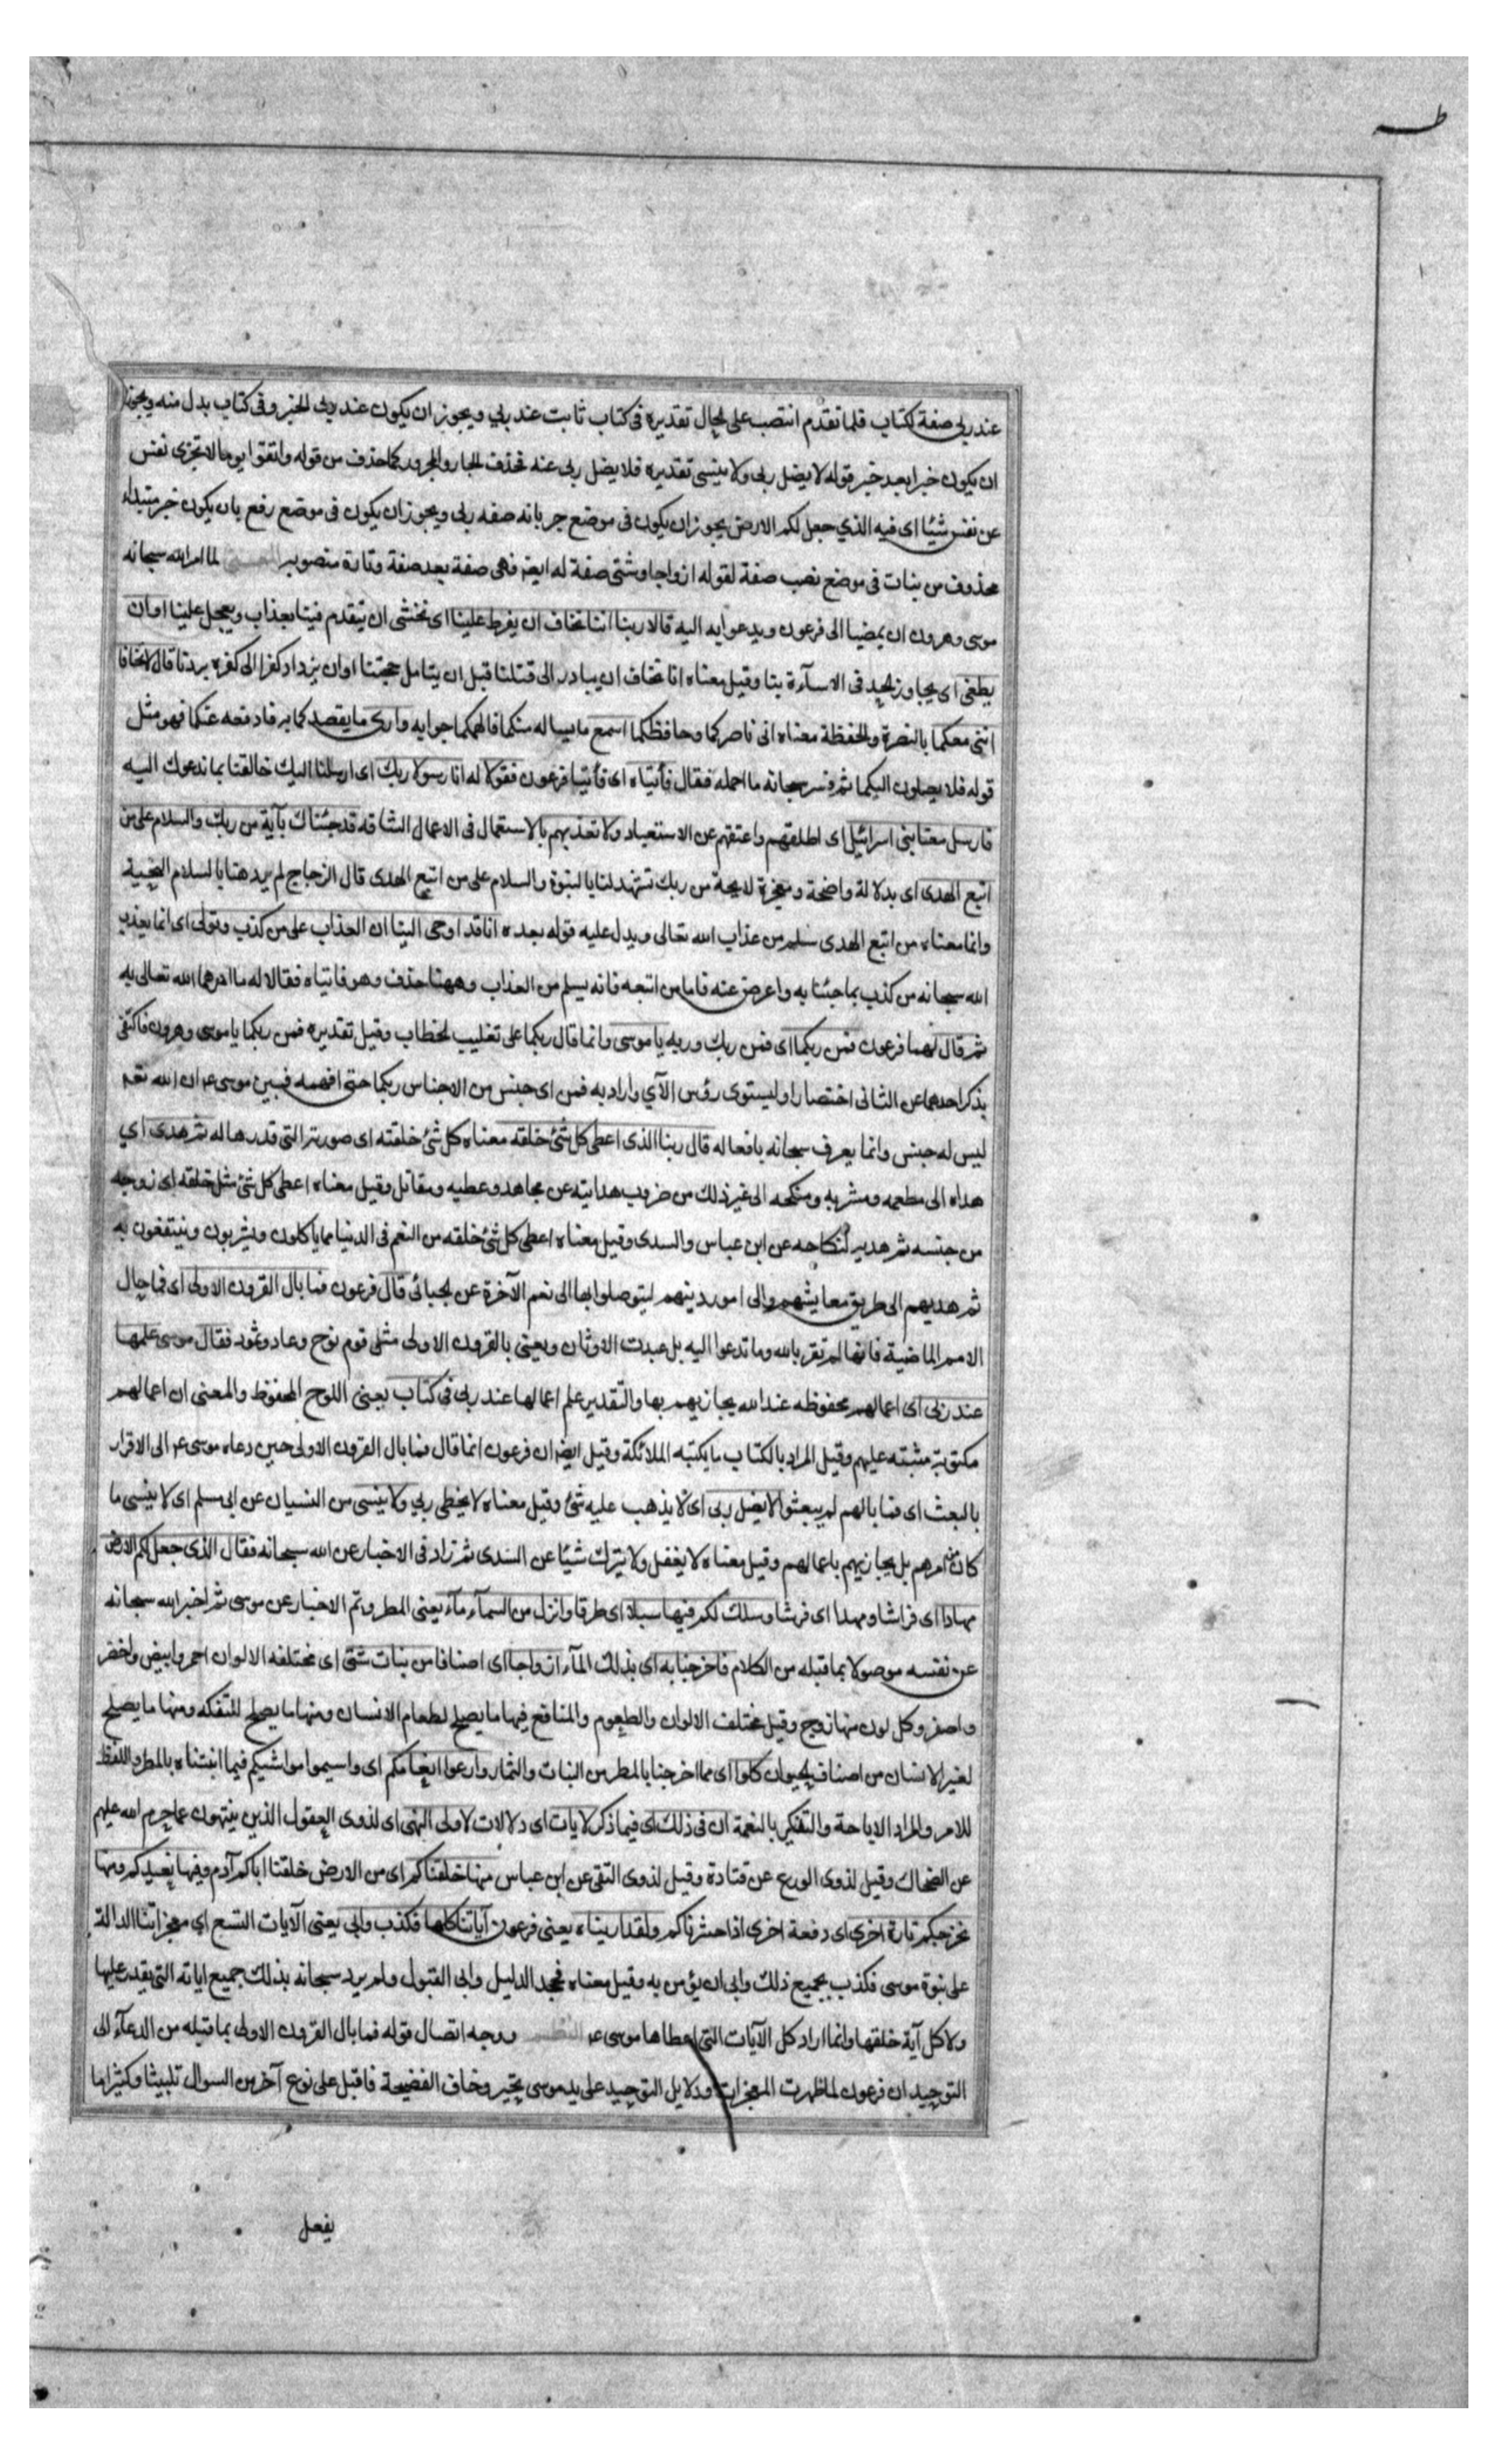 طه
عند ربى صفة لكتاب فلما تقدم انتصب على الحال تقديره فى كتاب ثابت عند ربي ويجوز ان يكون عند ربى الخبر وفى كتاب بدل منه ويجوز
ان يكون خبرا بعد خبر قوله لا يضل ربى ولا ينسى تقديره فلا يضل ربى عنه فحذف الجار والمجرور كما حذف من قوله واتقوا يوما لا تجزى نفس
عن نفس شيئا اى فيه الذي جعل لكم الارض يجوز ان يكون فى موضع جر بانه صفه ربى ويجوز ان يكون فى موضع رفع بان يكون خبر مبتداء
محذوف من نبات فى موضع نصب صفة لقوله ازواجا وشتى صفة له ايضا فهى صفة بعد صفة وتارة منصوب المعنى لما امر الله سبحانه
موسى وهرون ان يمضيا الى فرعون ويدعوا به اليه قالا ربنا اننا نخاف ان يفرط علينا اى نخشى ان يتقدم فينا بعذاب ويعجل علينا او ان
يطغى اى يجاوز الحد فى الاسآءة بنا وقيل معناه انا نخاف ان يبادر الى قتلنا قبل ان يتامل حجتنا او ان يزداد كفرا الى كفره بردنا قال لا تخافا
اننى معكما بالنصرة والحفظة معناه انى ناصركما وحافظكما اسمع ما يساله منكما فالهمكما جوابه وارى ما يقصد كما به فادفعه عنكما فهو مثل
قوله فلا يصلون اليكما ثم فسر سبحانه ما اجمله فقال فأتياه اى فأتيا فرعون فقولا له انا رسولا ربك اى ارسلنا اليك خالقنا بما ندعوك اليه
فارسل معنا بنى اسرائيل اى اطلقهم واعتقهم عن الاستعباد ولا تعذبهم بالاستعمال فى الاعمال الشاقه قد جئناك بآية من ربك والسلام على من
اتبع الهدى اى بدلالة واضحة ومعجزة لايحة من ربك تشهد لنا بالنبوة والسلام على من اتبع الهدى قال الزجاج لم يرد هنا بالسلام التحية
وانما معناه من اتبع الهدى سلم من عذاب الله تعالى ويدل عليه قوله بعده انا قد اوحى الينا ان العذاب على من كذب وتولى اى انما يعذب
الله سبحانه من كذب بما جئنا به واعرض عنه فاما من اتبعه فانه يسلم من العذاب وههنا حذف وهو فاتياه فقالا له ما امرهما الله تعالى به
ثم قال لهما فرعون فمن ربكما اى فمن ربك وربه يا موسى وانما قال ربكما على تغليب الخطاب وقيل تقديره فمن ربكما يا موسى وهرون فاكتفى
بذكر احدهما عن الثانى اختصارا وليستوى رؤس الآي واراد به فمن اى جنس من الاجناس ربكما حتى افهمه فبين موسى عم ان الله تعم
ليس له جنس وانما يعرف سبحانه بافعاله قال ربنا الذى اعطى كل شئ خلقه معناه كل شئ خلقته اى صورته التى قدرها له ثم هدى اي
هداه الى مطعمه ومشربه ومنكحه الى غير ذلك من ضروب هدايته عن مجاهد وعطيه ومقاتل وقيل معناه اعطى كل شئ مثل خلقه اى زوجه
من جنسه ثم هديه لنكاحه عن ابن عباس والسدى وقيل معناه اعطى كل شئ خلقه من النعم فى الدنيا مما ياكلون ويشربون وينتفعون به
ثم هديهم الى طريق معايشهم والى امور دينهم ليتوصلوا بها الى نعم الآخرة عن الجبائى قال فرعون فما بال القرون الاولى اى فما حال
الامم الماضية فانها لم تقر بالله وما تدعوا اليه بل عبدت الاوثان ويعنى بالقرون الاولى مثل قوم نوح وعاد وثمود فقال موسى علمها
عند ربى اى اعمالهم محفوظه عند الله يجازيهم بها والتقدير علم اعمالها عند ربى فى كتاب يعنى اللوح المحفوظ والمعنى ان اعمالهم
مكتوبة مثبته عليهم وقيل المراد بالكتاب ما يكتبه الملائكة وقيل ايضا ان فرعون انما قال فما بال القرون الاولى حين دعاه موسى عم الى الاقرار
بالبعث اى فما بالهم لم يبعثوا لا يضل ربى اى لا يذهب عليه شئ وقيل معناه لا يخطى ربي ولا ينسى من النسيان عن ابى مسلم اى لا ينسى ما
كان من امرهم بل يجازيهم باعمالهم وقيل معناه لا يغفل ولا يترك شيئا عن السدى ثم زاد فى الاخبار عن الله سبحانه فقال الذى جعل لكم الارض
مهادا اى فراشا ومهدا اى فرشا وسلك لكم فيها سبلا اى طرقا وانزل من السمآء مآء يعنى المطر وتم الاخبار عن موسى ثم اخبر الله سبحانه
عن نفسه موصولا بما قبله من الكلام فاخرجنا به اى بذلك المآء ازواجا اى اصنافا من نبات شتى اى مختلفه الالوان احمر وابيض واخضر
واصفر وكل لون منها زوج وقيل مختلف الالوان والطعوم والمنافع فيها ما يصلح لطعام الانسان ومنها ما يصلح للتفكه ومنها ما يصلح
لغير الانسان من اصناف الحيوان كلوا اى مما اخرجنا بالمطر من النبات والثمار وارعوا انعامكم اى واسيموا مواشيكم فيما انبتناه بالمطر واللفظ
للامر والمراد الاباحة والتفكير بالنعمة ان فى ذلك اى فيما ذكر لايات اى دلالات لاولى النهى اى لذوى العقول الذين ينتهون عما حرم الله عليهم
عن الضحاك وقيل لذوى الورع عن قتادة وقيل لذوى التقى عن ابن عباس منها خلقناكم اى من الارض خلقنا اباكم آدم وفيها نعيدكم ومنها
نخرجكم تارة اخرى اى دفعة اخرى اذا حشرناكم ولقد اريناه يعنى فرعون آياتنا كلها فكذب وابى يعنى الآيات التسع اي معجزاتنا الدالة
على نبوة موسى فكذب بجميع ذلك وابى ان يؤمن به وقيل معناه فجحد الدليل وابى القبول ولم يرد سبحانه بذلك جميع اياته التى يقدر عليها
ولا كل آية خلقها وانما اراد كل الآيات التى اعطاها موسى عم النظم ووجه اتصال قوله فما بال القرون الاولى بما قبله من الدعآء الى
التوحيد ان فرعون لما ظهرت المعجزات ودلايل التوحيد على يد موسى تحير وخاف الفضيحة فاقبل على نوع آخر من السوال تلبيسا وكثيرا ما
يفعل